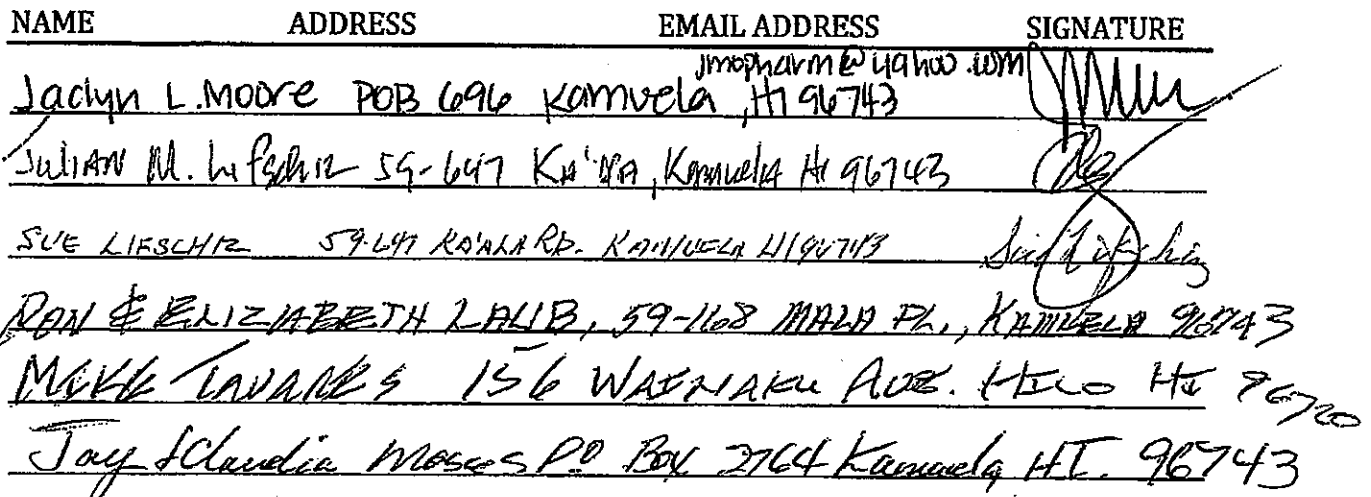 NAME ADDRESS EMAIL ADDRESS SIGNATURE
jmopharm@yahoo.com
Jaclyn L. Moore POB 696 Kamuela, HI 96743
JULIAN M. Lifschiz 59-647 Kamuela HI 96743
SUE LIFSCHIZ 59-647 KA'ALA RD. KAMUELA HI 96743
RON & ELIZABETH LAUB, 59-168 MALA PL., KAMUELA 96743
MIKE TAVARES 156 WAINAKU AVE. HILO HI 96720
Jay & Claudia Moses PO Box 2764 Kamuela HI. 96743